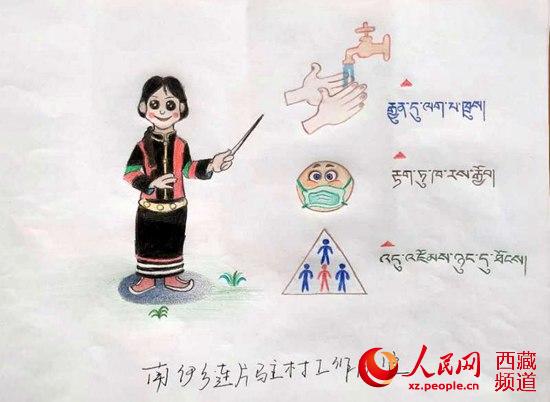 རྒྱུན་དུ་ལག་པ་ཁྲུས།
རྟག་ཏུ་ཁ་རས་རྒྱོབ།
འདུ་འཛོམས་ཉུང་དུ་ཐོངས།
南伊乡连片驻村工作
人民网 西藏频道
xz.people.cn